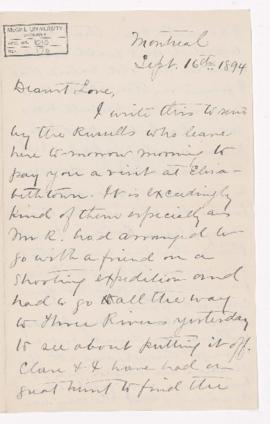 McGILL UNIVERSITY
ACC. NO.
REF.
Montreal
Sept. 16th 1894
Dearest Love,
I write this to send
by the Russells who leave
here to-morrow morning to
pay you a visit at Elisa-
bethtown. It is exceedingly
kind of them especially as
Mr R. had arranged to
go with a friend on a
shooting expedition and
had to go all the way
to Three Rivers yesterday
to see about putting it off.
Clare & I have had a
great hunt to find the